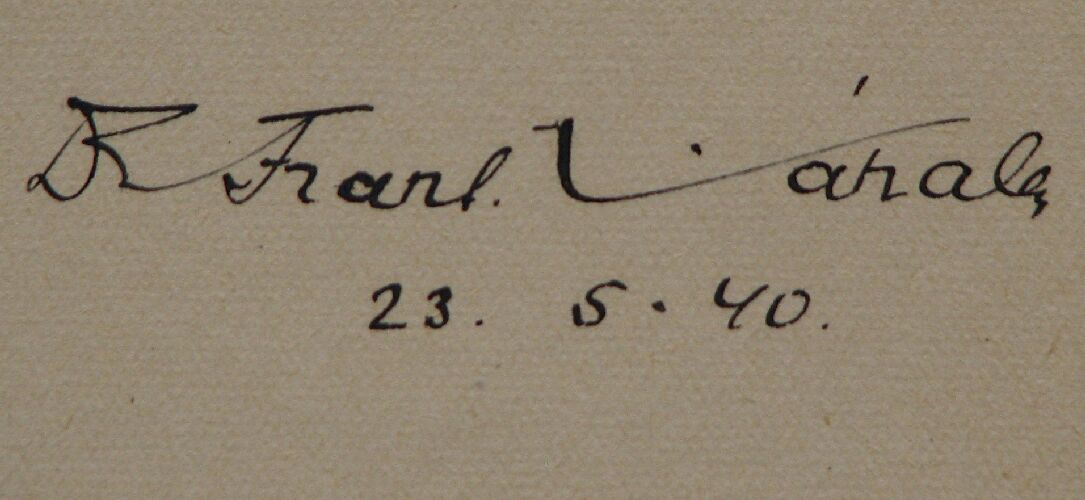 Dr Frant.
23. 5. 40.